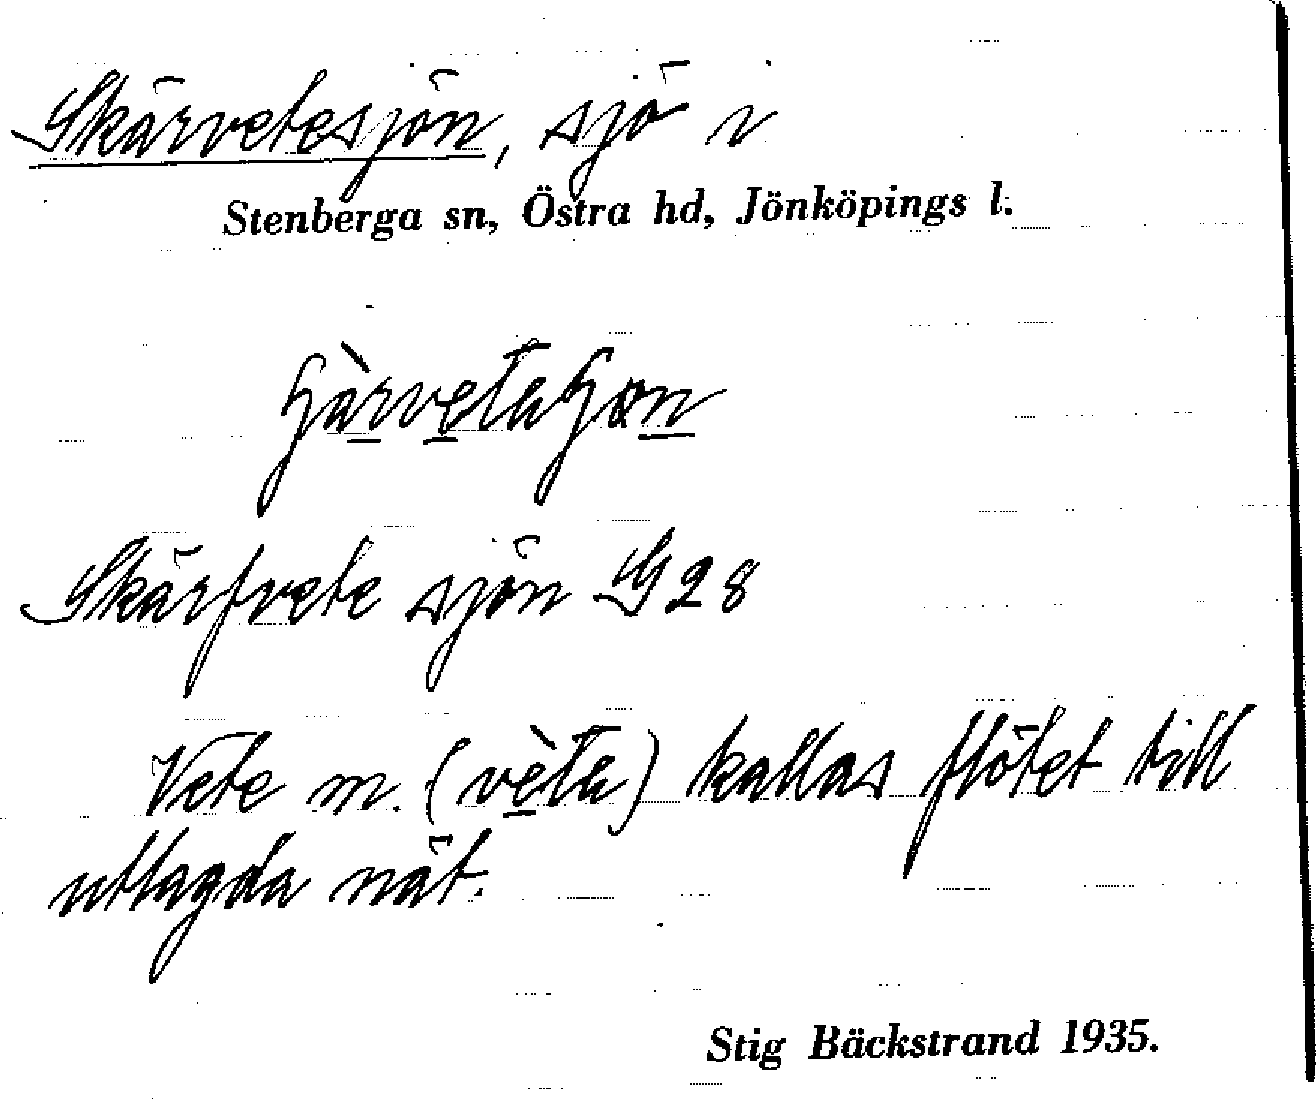 Skärvetesjön, sjö i
Stenberga sn, Östra hd, Jönköpings l.
Skärfvete sjön G 28
Vete m. (vèta) kallas flötet till
utlagda nät.
Stig Bäckstrand 1935.